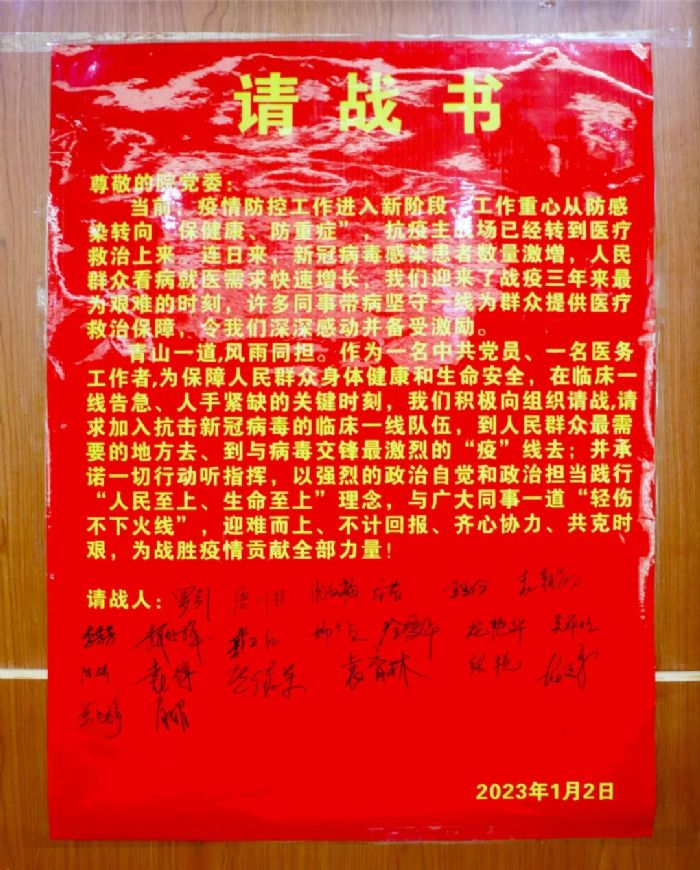 请战书
尊敬的院党委：
当前，疫情防控工作进入新阶段，工作重心从防感
染转向“保健康、防重症”，抗疫主战场已经转到医疗
救治上来，连日来，新冠病毒感染患者数量激增，人民
群众看病就医需求快速增长，我们迎来了战疫三年来最
为艰难的时刻，许多同事带病坚守一线为群众提供医疗
救治保障，令我们深深感动并备受激励。
青山一道,风雨同担。作为一名中共党员、一名医务
工作者,为保障人民群众身体健康和生命安全，在临床一
线告急、人手紧缺的关键时刻，我们积极向组织请战,请
求加入抗击新冠病毒的临床一线队伍，到人民群众最需
要的地方去、到与病毒交锋最激烈的“疫”线去；并承
诺一切行动听指挥，以强烈的政治自觉和政治担当践行
“人民至上、生命至上”理念，与广大同事一道“轻伤
不下火线”，迎难而上、不计回报、齐心协力、共克时
艰，为战胜疫情贡献全部力量！
请战人：
袁育林 张艳
2023年1月2日